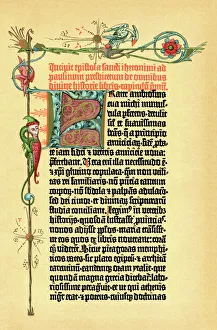 Incipit epistola sancti iheronimi ad
paulinum presbiterum de omnibus
divine historie libris. capitulum primū.
Frater ambrosius
tua michi munus-
cula perferens. detulit
sił et suavissimas
lrās. q̄ a principio
amiciciaȝ. fidē pba-
te iam fidei et veteris amicicie nova
pferebant. Vera em̄ illa necessitudo ē.
et xp̄i glutino copulata. qm̄ non utili-
tas rei familiaris. nō pn̄tia tantum
corpoȝ. nō sbdola et palpās adulacō.
sed dei timor. et divinaȝ scripturarum
studia conciliant. Legim⁹ in veterib⁹
historijs. quosdā lustrasse pvincias.
novos adisse pplos. maria trāsisse.
ut eos quos ex libris noverant: corā
qȝ viderēt. Sic pitagoras memphi-
ticos vates. sic plato egiptū. et architā
tarentinū. eandēqȝ oram ytalie. que
quondā magna grecia dicebaȶ: labo-
riosissime peragravit. et ut qui athe-
nis mgr̄ erat. et potens. cuiusqȝ doctrinas